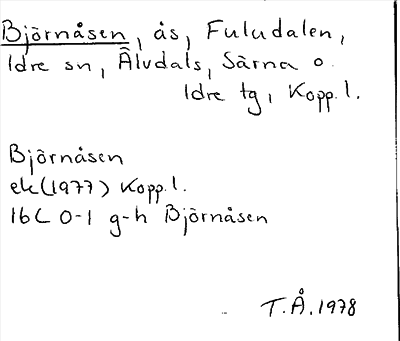 Björnåsen, ås, Fuludalen,
Idre sn, Älvdals, Särna o.
Idre tg, Kopp. l.
Björnåsen
ek (1977) Kopp. l.
16C 0-1 g-h Björnåsen
T.Å. 1978